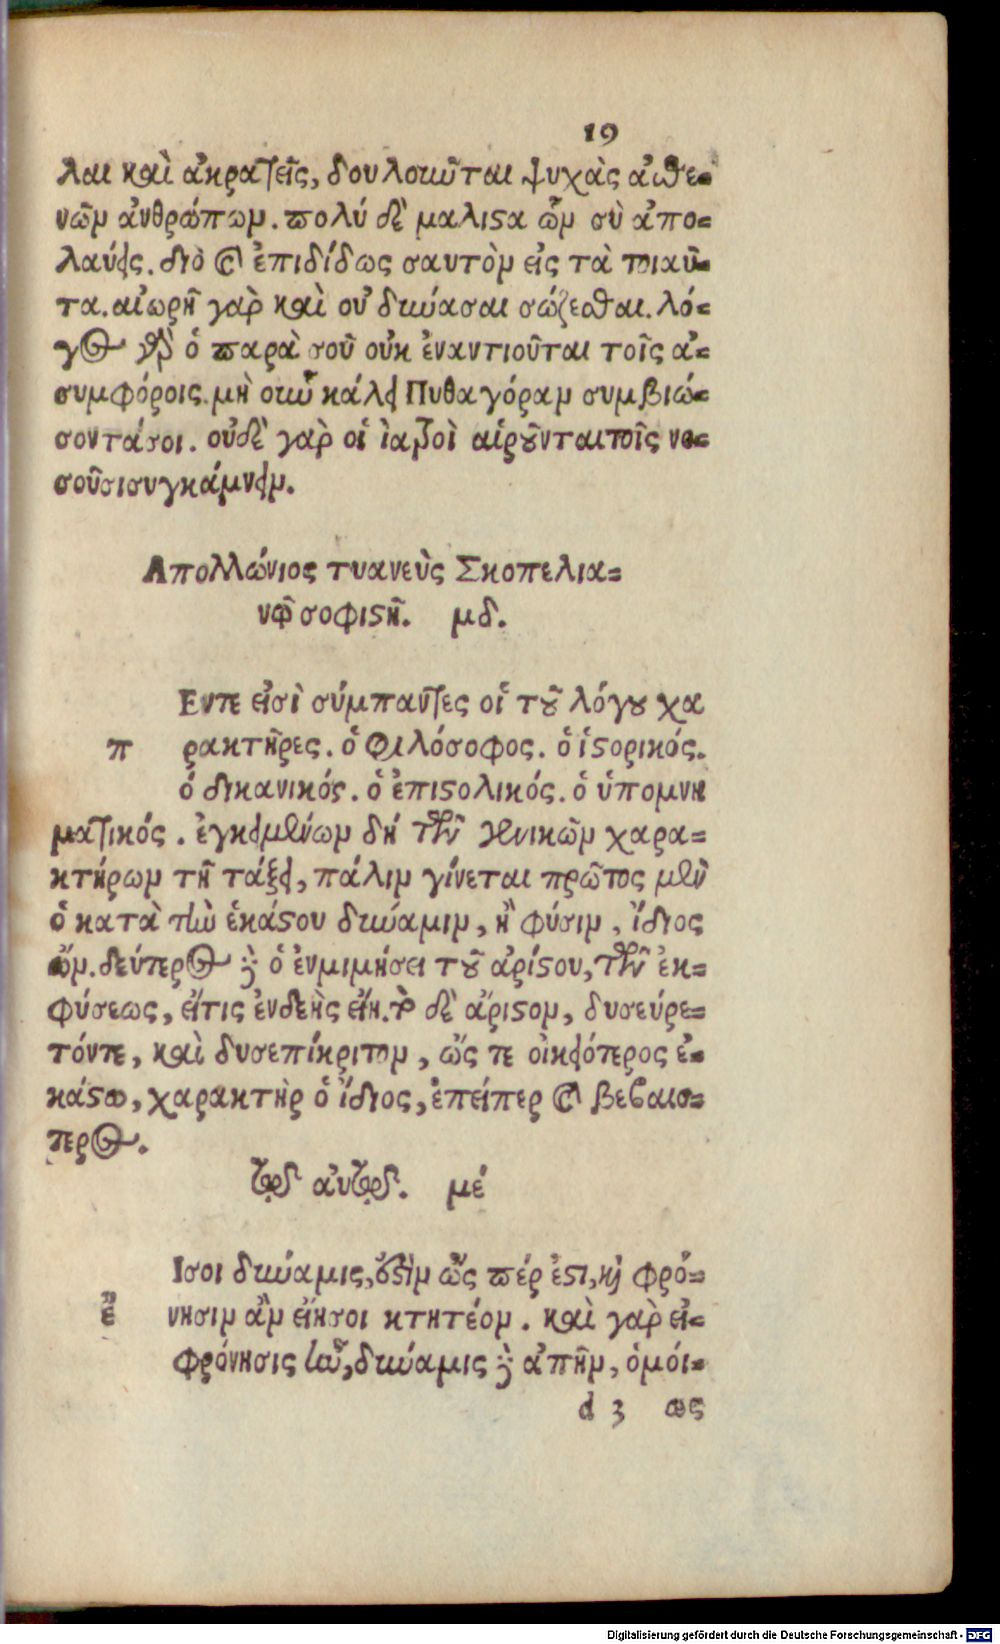 19
λαι καὶ ἀκρατεῖς, δουλοιῶται ψυχὰς ἀσθε-
νῶν ἀνθρώπων. πολύ δὲ μαλιστα ὧν σὺ ἀπο-
λαύεις. διὸ καὶ ἐπιδίδως σαυτὸν εἰς τὰ τοιαῦ-
τα. αἰωρῆ γὰρ καὶ οὐ δυνάσαι σώζεσθαι. λό-
γος γὰρ ὁ παρὰ σοῦ οὐκ ἐναντιοῦται τοῖς ἀ-
συμφόροις. μὴ οὖν κάλει Πυθαγόραν συμβιώ-
σοντά σοι. οὐδὲ γὰρ οἱ ἰατροὶ αἱροῦνται τοῖς νο-
σοῦσι συγκάμνειν.
Απολλώνιος τυανεὺς Σκοπελια-
νῷ σοφιστῆ. μδ.
Εντε εἰσὶ σύμπαντες οἱ τοῦ λόγου χα
π ρακτῆρες. ὁ Φιλόσοφος. ὁ ἱστορικός.
ὁ δικανικός. ὁ ἐπιστολικός. ὁ ὑπομνη
ματικός. ἐγκειμένων δή τῶν γενικῶν χαρα-
κτήρων τῆ τάξει, πάλιν γίνεται πρῶτος μὲν
ὁ κατὰ τὴν ἑκάστου δύναμιν, ἢ φύσιν, ἴδιος
ὤν. δεύτερος δὲ ὁ ἐν μιμήσει τοῦ ἀρίστου, τῶν ἐκ-
φύσεως, εἴτις ἐνδεὴς εἴη. τὸ δὲ ἄριστον, δυσεύρε-
τόντε, καὶ δυσεπίκριτον, ὥς τε οἰκειότερος ἑ-
κάστω, χαρακτὴρ ὁ ἴδιος, ἐπείπερ καὶ βεβαιο-
τερος.
τῷ αὐτῷ. μέ
Ισοι δύναμις, ἐστὶν ὥς πέρ ἐστι, καὶ φρό-
ἐ νησιν ἂν εἴησοι κτητέον. καὶ γὰρ εἰ-
φρόνησις ἦν, δύναμις δὲ ἀπῆν, ὁμοί-
d 3 ως
Digitalisierung gefördert durch die Deutsche Forschungsgemeinschaft - DFG